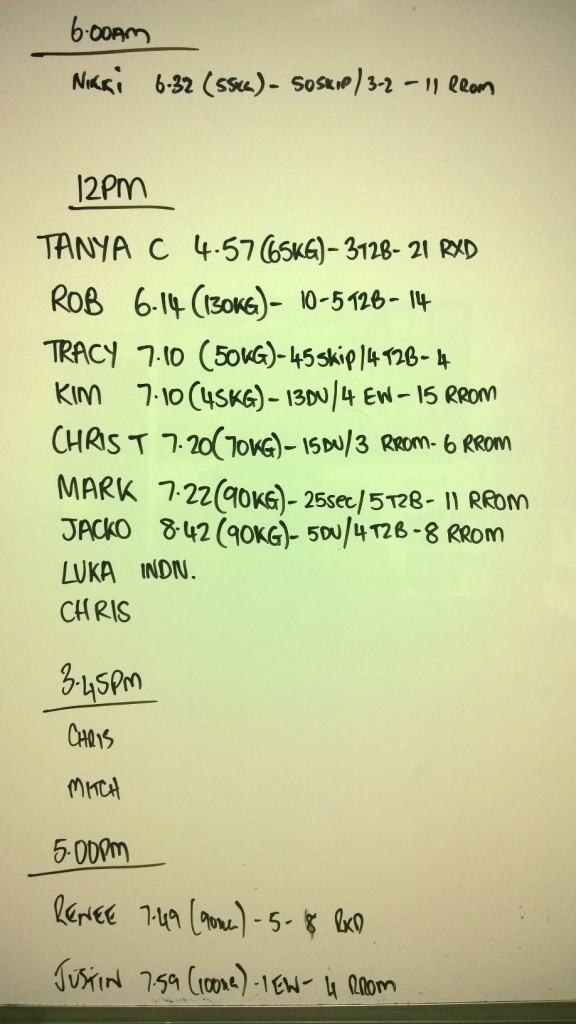 6.00AM
NIKKI 6.32 (55KG) - 50SKIP/3-2 - 11 RROM
12PM
TANYA C 4.57 (65KG) - 3T2B - 21 RXD
ROB 6.14 (130KG) - 10-5 T2B - 14
TRACY 7.10 (50KG) - 45 skip/4 T2B - 4
KIM 7.10 (45KG) - 13DU/4 EW - 15 RROM
CHRIS T 7.20 (70KG) - 15DU/3 RROM - 6 RROM
MARK 7.22 (90KG) - 25sec/5T2B - 11 RROM
JACKO 8.42 (90KG) - 5DU/4T2B - 8 RROM
LUKA INDN.
CHRIS
3.45PM
CHRIS
MITCH
5.00PM
RENEE 7.49 (90KG) - 5 - 8 RXD
JUSTIN 7.59 (100KG) - 1EW - 4 RROM